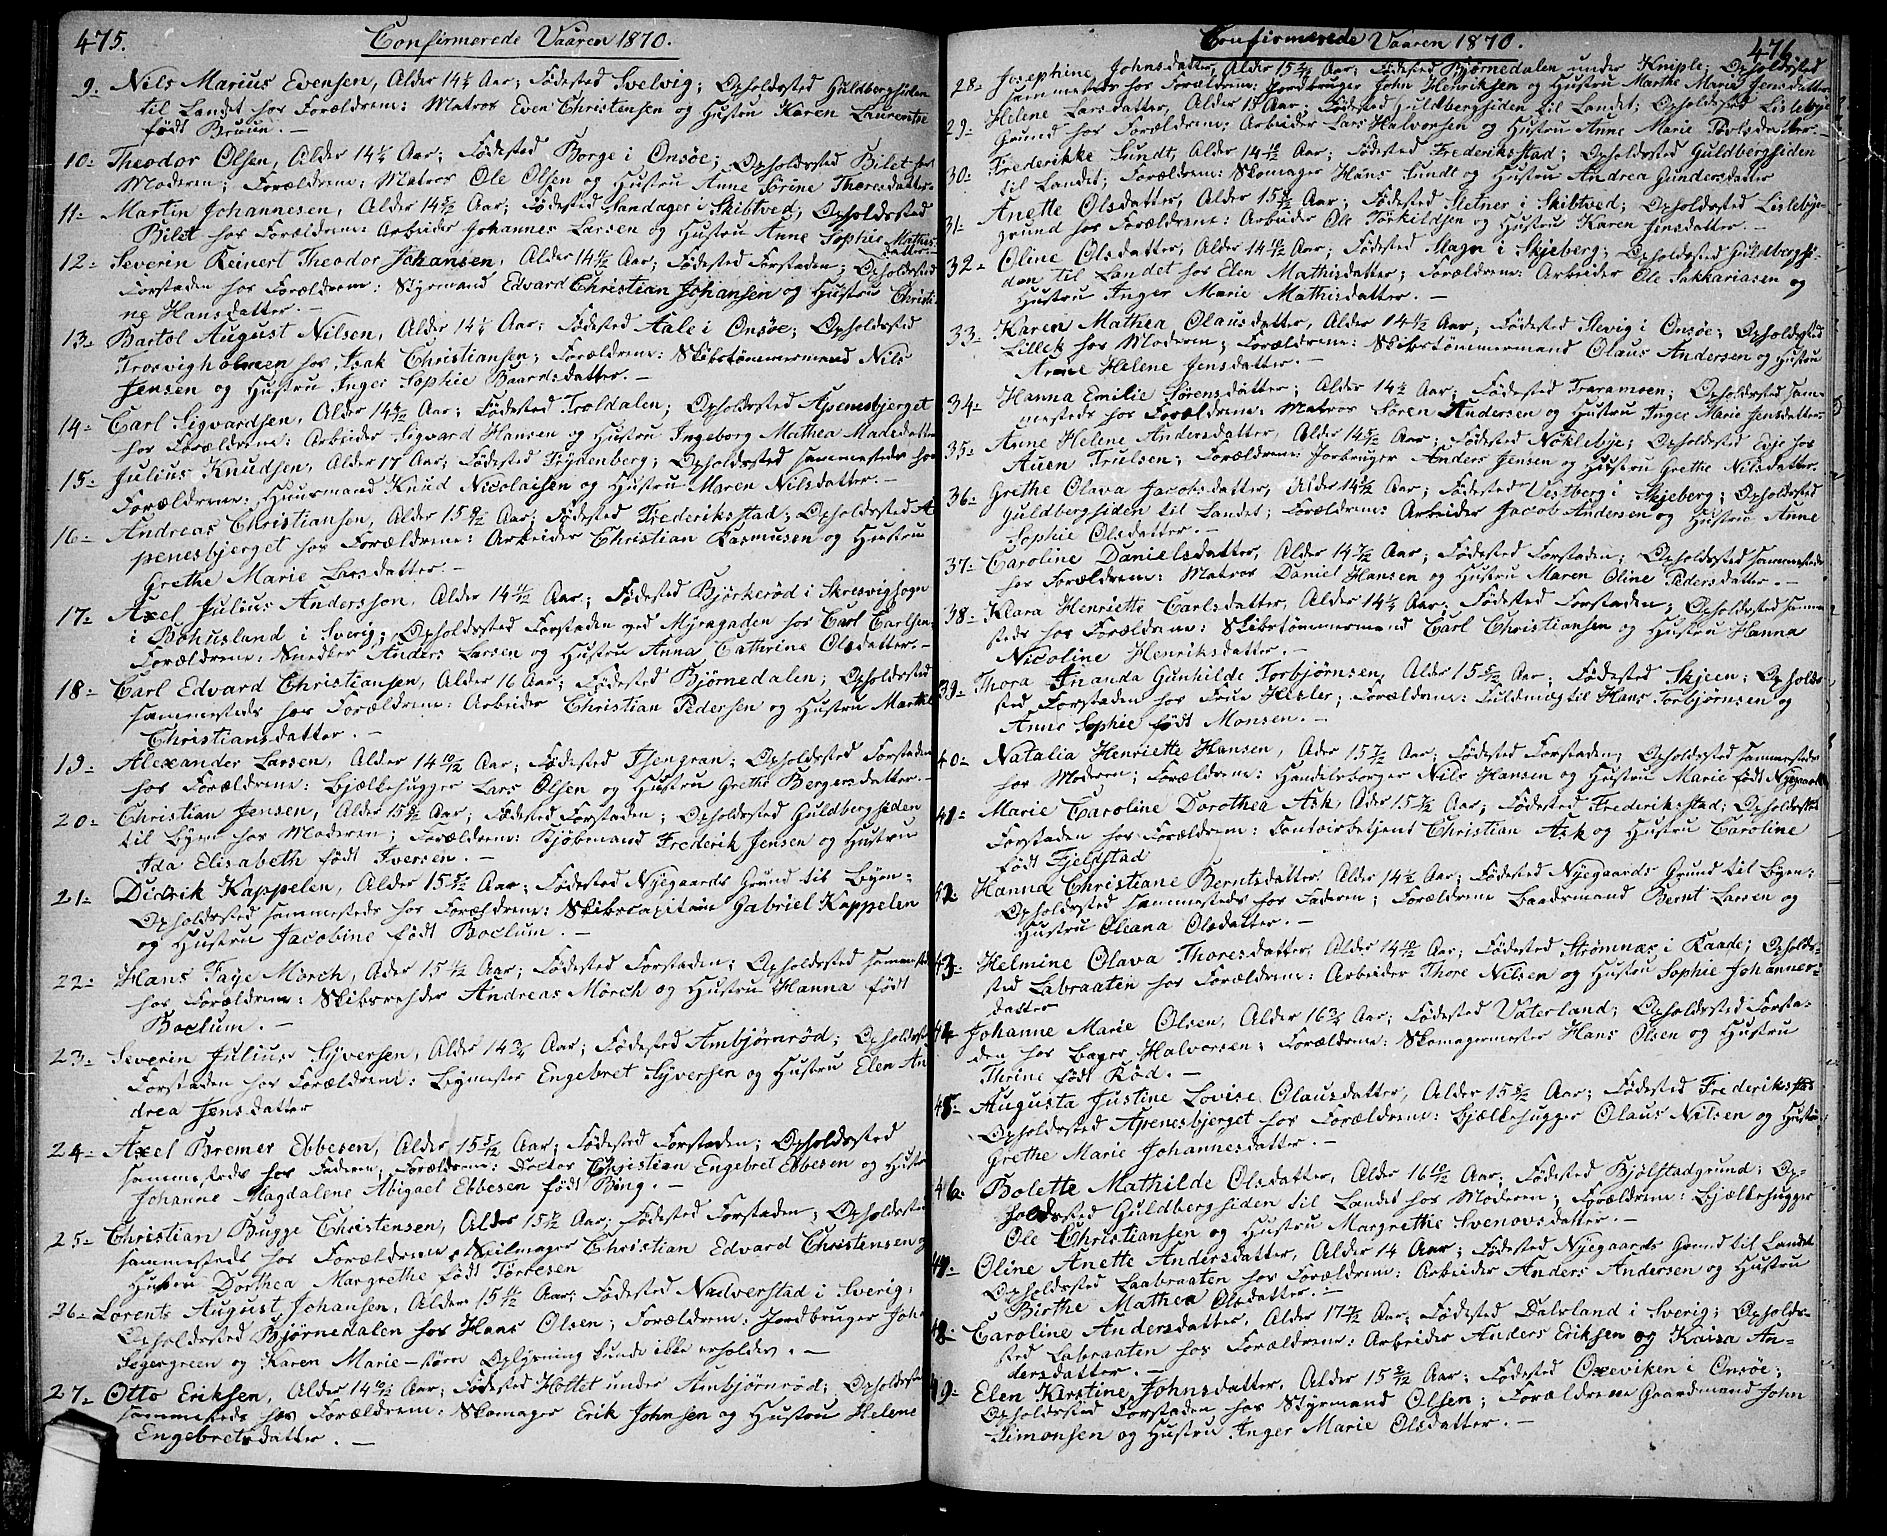 475. Confirmerede Vaaren 1870.
9- Nils Marius Evensen, Alder 14½ Aar; Fødested Svelvig; Opholdssted Guldbergsiden
til Landet hos Forældrene: Matros Even Christensen og Hustru Karen Laurentie
født Bruun. -
10- Theodor Olsen, Alder 14½ Aar; Fødested Borge i Onsøe; Opholdssted Bilet hos
Moderen; Forældrene: Matros Ole Olsen og Hustru Anne Sorine Thoresdatter-
11- Martin Johannesen, Alder 14 5/12 Aar; Fødested Sandager i Skibtved; Opholdssted
Bilet hos Forældrene: Arbeider Johannes Larsen og Hustru Anne Sophie Mathis-
datter-
12- Severin Reinert Theodor Johansen, Alder 14½ Aar; Fødested Forstaden; Opholdssted
Forstaden hos Forældrene: Styrmand Edvard Christian Johansen og Hustru Christi-
ne Hansdatter. -
13- Bartol August Nilsen, Alder 14½ Aar; Fødested Aale i Onsøe; Opholdssted
Trosvigholmen hos Isak Christiansen; Forældrene: Skibstømmermand Nils
Jensen og Hustru Inger Sophie Baardsdatter. -
14- Carl Sigvardsen, Alder 14 Aar; Fødested Troldalen; Opholdssted Apenesbjerget
hos Forældrene: Arbeider Sigvard Hansen og Hustru Ingeborg Mathea Madsdatter
15- Julius Knudsen, Alder 17 Aar; Fødested Frydenberg; Opholdssted sammesteds hos
Forældrene: Huusmand Knud Nicolaisen og Hustru Maren Nilsdatter. -
16- Andreas Christiansen, Alder 15 Aar; Fødested Frederiksstad; Opholdssted A-
penesbjerget hos Forældrene: Arbeider Christian Rasmusen og Hustru
Grethe Marie Larsdatter. -
17- Axel Julius Andersson, Alder 14 11/12 Aar; Fødested Bjørkerød i Skresvigsogn
i Bohusland i Sverig; Opholdssted Forstaden ved Myragaden hos Carl Carlsen;
Forældrene: Snedker Anders Larsen og Hustru Anna Cathrine Olsdatter. -
18- Carl Edvard Christiansen, Alder 16 Aar; Fødested Bjørnedalen; Opholdssted
sammesteds hos Forældrene: Arbeider Christian Pedersen og Hustru Marthe
Christiansdatter. -
19- Alexander Larsen, Alder 14 10/12 Aar; Fødested Thengran; Opholdssted Forstaden
hos Forældrene: Bjælkehugger Lars Olsen og Hustru Grethe Bergersdatter. -
20- Christian Jensen, Alder 15 Aar; Fødested Forstaden; Opholdssted Guldbergsiden
til Byen hos Moderen; Forældrene: Kjøbmand Frederik Jensen og Hustru
Ida Elisabeth født Iversen. -
21- Didrik Kappelen, Alder 15 5/12 Aar; Fødested Nyegaards Grund til Byen;
Opholdssted sammesteds hos Forældrene: Skibscapitain Gabriel Kappelen
og Hustru Jacobine født Boclum. -
22- Hans Faye Mørch, Alder 15½ Aar; Fødested Forstaden; Opholdssted sammesteds
hos Forældrene: Skibsrehder Andreas Mörch og Hustru Hanna født
Boclum. -
23- Severin Julius Syversen, Alder 14¾ Aar; Fødested Ambjørnrød; Opholdssted
Forstaden hos Forældrene: Bymester Engebret Syversen og Hustru Elen An
drea Jensdatter
24- Axel Bremer Ebbesen, Alder 15 5/12 Aar; Fødested Forstaden; Opholdssted
sammesteds hos Faderen; Forældrene: Doctor Christian Engebret Ebbesen og Hustru
Johanne Magdalene Abigael Ebbesen født Bing. -
25- Christian Bugge Christensen, Alder 15 Aar; Fødested Forstaden; Opholdssted
sammesteds hos Forældrene: Seilmager Christian Edvard Christensen og
Hustru Dorthea Margrethe født Torresen
26- Lorents August Johansen, Alder 15 Aar; Fødested Naverstad i Sverig;
Opholdssted Bjørnedalen hos Hans Olsen; Forældrene: Jordbruger Joha
Segergreen og Karen Marie - større Oplysning kunde ikke erholdes. -
27- Otto Eriksen, Alder 14 Aar; Fødested Hottet under Ambjørnrød; Opholdssted
sammesteds hos Forældrene: Skomager Erik Johnsen og Hustru Helene
Engebretsdatter. -
Confirmerede Vaaren 1870. 476
28- Josephine Johnsdatter, Alder 15 Aar; Fødested Bjørnedalen under Kniple; Opholdssted
sammesteds hos Forældrene: Jordbruger John Henriksen og Hustru Marthe Marie Jensdatter
29- Helene Larsdatter, Alder 15 Aar; Fødested Guldbergsiden til Landet; Opholdssted Lislebye
Grund hos Forældrene: Arbeider Lars Halvorsen og Hustru Anne Marie Povlsdatter. -
30- Frederikke Sundt, Alder 14 10/12 Aar; Fødested Frederiksstad; Opholdssted Guldbergsiden
til Landet; Forældrene: Skomager Hans Sundt og Hustru Andrea Gundersdatter
31- Anette Olsdatter, Alder 15 Aar; Fødested Sletner i Skibtved; Opholdssted Lislebye-
grund hos Forældrene: Arbeider Ole Torkildsen og Hustru Karen Jensdatter. -
32- Oline Olsdatter, Alder 14 11/12 Aar; Fødested Magn i Skjeberg; Opholdssted Guldbergsi-
den til Landet hos Elen Mathisdatter; Forældrene: Arbeider Ole Sakkariasen og
Hustru Inger Marie Mathisdatter. -
33- Karen Mathea Olausdatter, Alder 14½ Aar; Fødested Slevig i Onsøe; Opholdssted
Lillek hos Moderen; Forældrene: Skibstømmermand Olaus Andersen og Hustru
Anne Helene Jensdatter. -
34- Hanna Emilie Sørensdatter; Alder 14½ Aar; Fødested Traramoen; Opholdssted sam-
mesteds hos Forældrene: Matros Søren Andersen og Hustru Inger Marie Jensdatter
35- Anne Helene Andersdatter, Alder 14 5/12 Aar; Fødested Nøklebye; Opholdssted Enje hos
Auen Trulsen; Forældrene: Jorbruger Anders Jensen og Hustru Grethe Nilsdatter.
36- Grethe Olava Jacobsdatter, Alder 14 Aar; Fødested Vestberg i Skjeberg; Opholdssted
Guldbergsiden til Landet; Forældrene: Arbeider Jacob Andersen og Hustru Anne
Sophie Olsdatter. -
37- Caroline Danielsdatter, Alder 14 7/12 Aar; Fødested Forstaden; Opholdssted sammesteds
hos Forældrene: Matros Daniel Hansen og Hustru Maren Oline Pedersdatter. -
38- Klara Henriette Carlsdatter, Alder 14½ Aar; Fødested Forstaden; Opholdssted samme
steds hos Forældrene: Skibstømmermand Carl Christiansen og Hustru Hanna
Nicoline Henriksdatter. -
39- Thora Ananda Gunhilde Torbjørnsen, Alder 15 5/12 Aar; Fødested Skjeen; Opholds
sted Forstaden hos Frue Heisler; Forældrene: Fuldmægtig Hans Torbjørnsen og
Anne Sophie født Monsen. -
40- Natalia Henriette Hansen, Alder 15 7/12 Aar; Fødested Forstaden; Opholdssted sammesteds
hos Moderen; Forældrene: Handelsborger Nils Hansen og Hustru Marie født Nyegaard
41- Marie Caroline Dorothea Ask, Alder 15 Aar; Fødested Frederiksstad; Opholdssted
Forstaden hos Forældrene: Contoirbetjent Christian Ask og Hustru Caroline
født Fjeldstad
42- Hanna Christiane Berntsdatter, Alder 14½ Aar; Fødested Nyegaards Grund til Byen;
Opholdssted sammesteds hos Faderen; Forældrene Baadsmand Bernt Larsen og
Hustru Oleana Olsdatter. -
43- Helmine Olava Thoresdatter, Alder 14 10/12 Aar; Fødested Strømnæs i Raade; Opholds-
sted Labraaten hos Forældrene: Arbeider Thore Nilsen og Hustru Sophie Johannes-
datter
44- Johanne Marie Olsen, Alder 16¾ Aar; Fødested Vaterland; Opholdssted Forsta-
den hos Bager Halvorsen; Forældrene: Skomagermester Hans Olsen og Hustru
Thrine født Rød. -
45- Augusta Justine Lovise Olausdatter, Alder 15 Aar; Fødested Frederiksstad
Opholdssted Apenesbjerget hos Forældrene: Bjælkehugger Olaus Nilsen og Hustru
Grethe Marie Johannesdatter. -
46- Bolette Mathilde Olsdatter, Alder 16 10/12 Aar; Fødested Kjølstadgrund; Op-
holdssted Guldbergsiden til Landet hos Moderen; Forældrene: Bjælkehugger
Ole Christiansen og Hustru Margrethe Svenovsdatter. -
47- Oline Anette Andersdatter, Alder 14 Aar; Fødested Nyegaards Grund til Landet
Opholdssted Laabraaten hos Forældrene: Arbeider Anders Andersen og Hustru
Birthe Mathea Olsdatter. -
48- Caroline Andersdatter, Alder 17½ Aar; Fødested Dalsland i Sverig; Opholds-
sted Labraaten hos Forældrene: Arbeider Anders Eriksen og Kaisa An-
dersdatter. -
49- Elen Kirstine Johnsdatter, Alder 15 Aar; Fødested Oxeviken i Onsøe;
Opholdssted Forstaden hos Styrmand Olsen; Forældrene Gaardmand John
Simonsen og Hustru Inger Marie Olsdatter. -